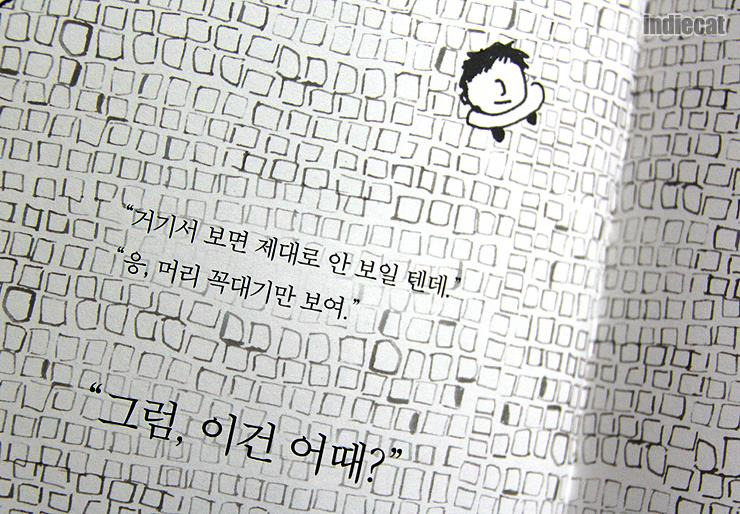 indiecat
“거기서 보면 제대로 안 보일 텐데.”
“응, 머리 꼭대기만 보여.”
“그럼, 이건 어때?”